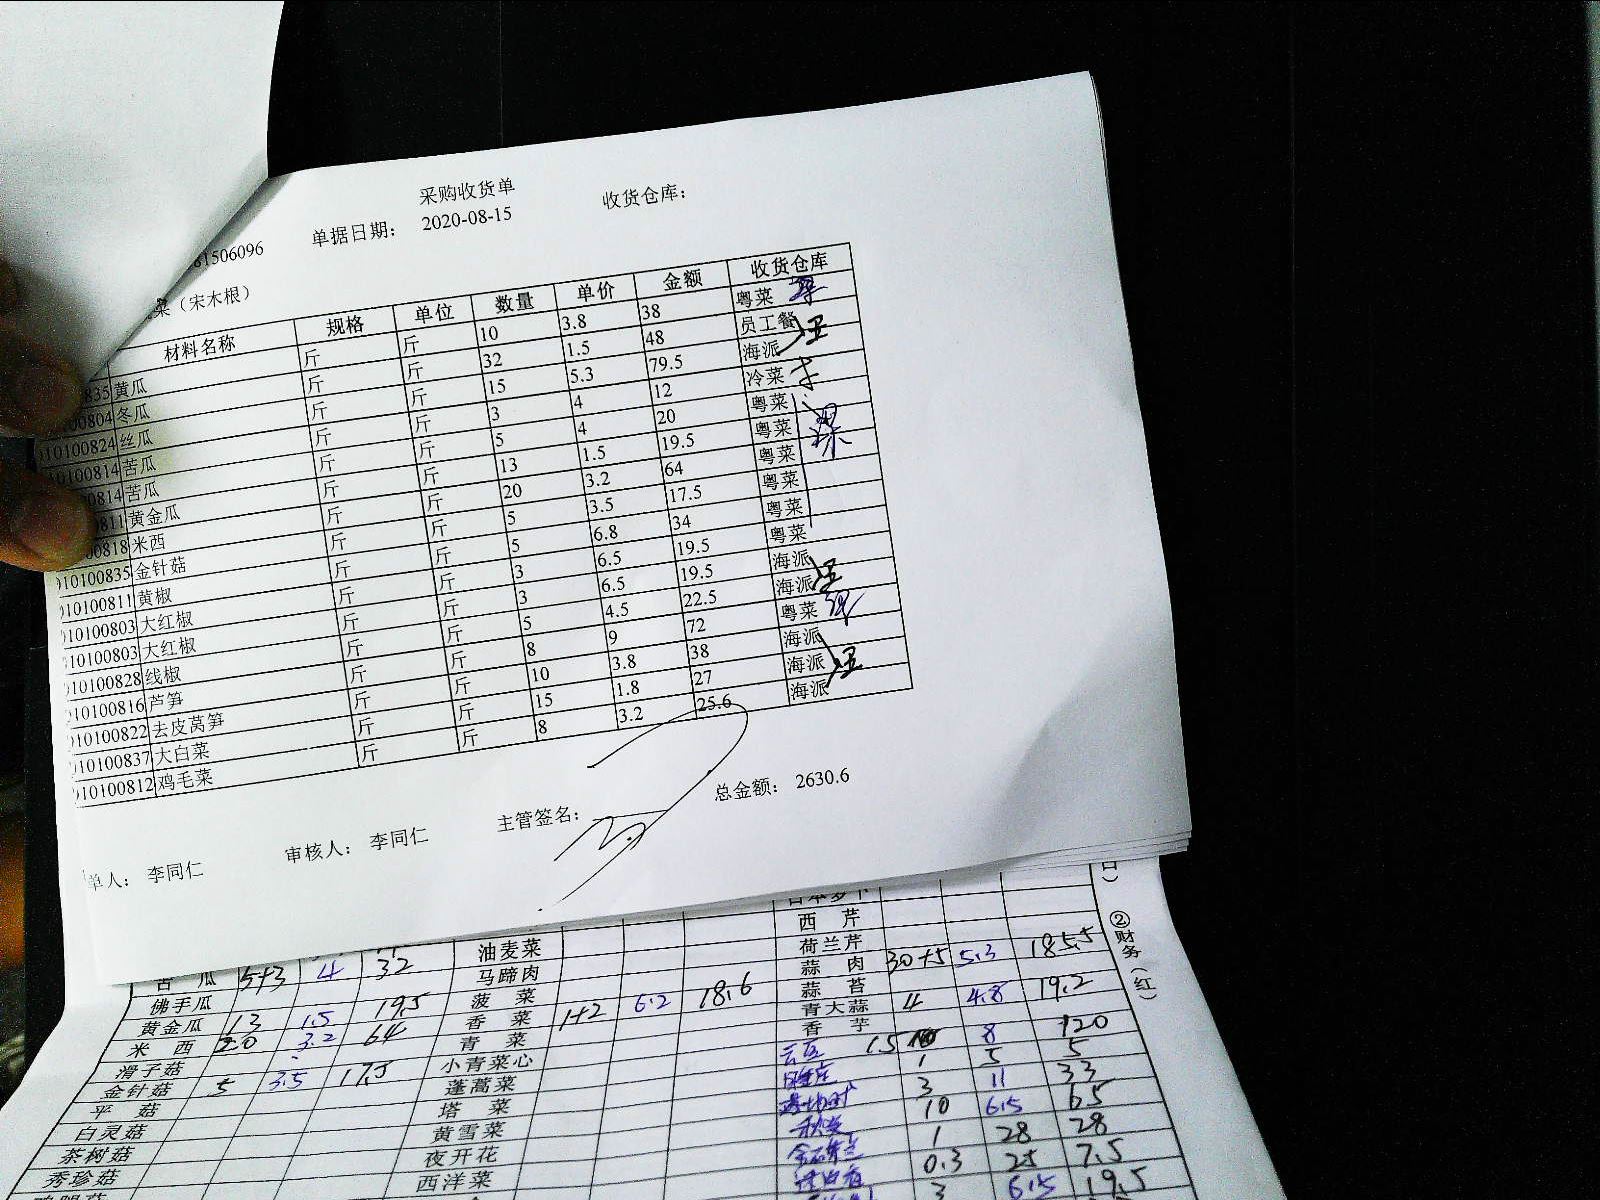 采购收货单
81506096 单据日期： 2020-08-15 收货仓库：
（宋木根）
材料名称 规格 单位 数量 单价 金额 收货仓库
835 黄瓜 斤 斤 10 3.8 38 粤菜
00804 冬瓜 斤 斤 32 1.5 48 员工餐
10100824 丝瓜 斤 斤 15 5.3 79.5 海派
10100814 苦瓜 斤 斤 3 4 12 冷菜
00814 苦瓜 斤 斤 5 4 20 粤菜
811 黄金瓜 斤 斤 13 1.5 19.5 粤菜
00818 米西 斤 斤 20 3.2 64 粤菜
10100835 金针菇 斤 斤 5 3.5 17.5 粤菜
10100811 黄椒 斤 斤 5 6.8 34 粤菜
10100803 大红椒 斤 斤 3 6.5 19.5 粤菜
10100803 大红椒 斤 斤 3 6.5 19.5 海派
10100828 线椒 斤 斤 5 4.5 22.5 海派
10100816 芦笋 斤 斤 8 9 72 粤菜
10100822 去皮莴笋 斤 斤 10 3.8 38 海派
10100837 大白菜 斤 斤 15 1.8 27 海派
10100812 鸡毛菜 斤 斤 8 3.2 25.6 海派
单人： 李同仁 审核人： 李同仁 主管签名： 总金额： 2630.6
②财务（红）
西芹
油麦菜 荷兰芹
苦瓜 5+3 4 32 马蹄肉 蒜肉 30+5 5.3 185.5
佛手瓜 菠菜 蒜苔
黄金瓜 13 1.5 19.5 香菜 1+2 6.2 18.6 青大蒜 4 4.8 19.2
米西 20 3.2 64 青菜 香芋
滑子菇 小青菜心 云豆 15 8 120
金针菇 5 3.5 17.5 蓬蒿菜 1 5 5
平菇 塔菜 3 11 33
白灵菇 黄雪菜 10 6.5 65
茶树菇 夜开花 1 28 28
秀珍菇 西洋菜 0.3 25 7.5
3 6.5 19.5